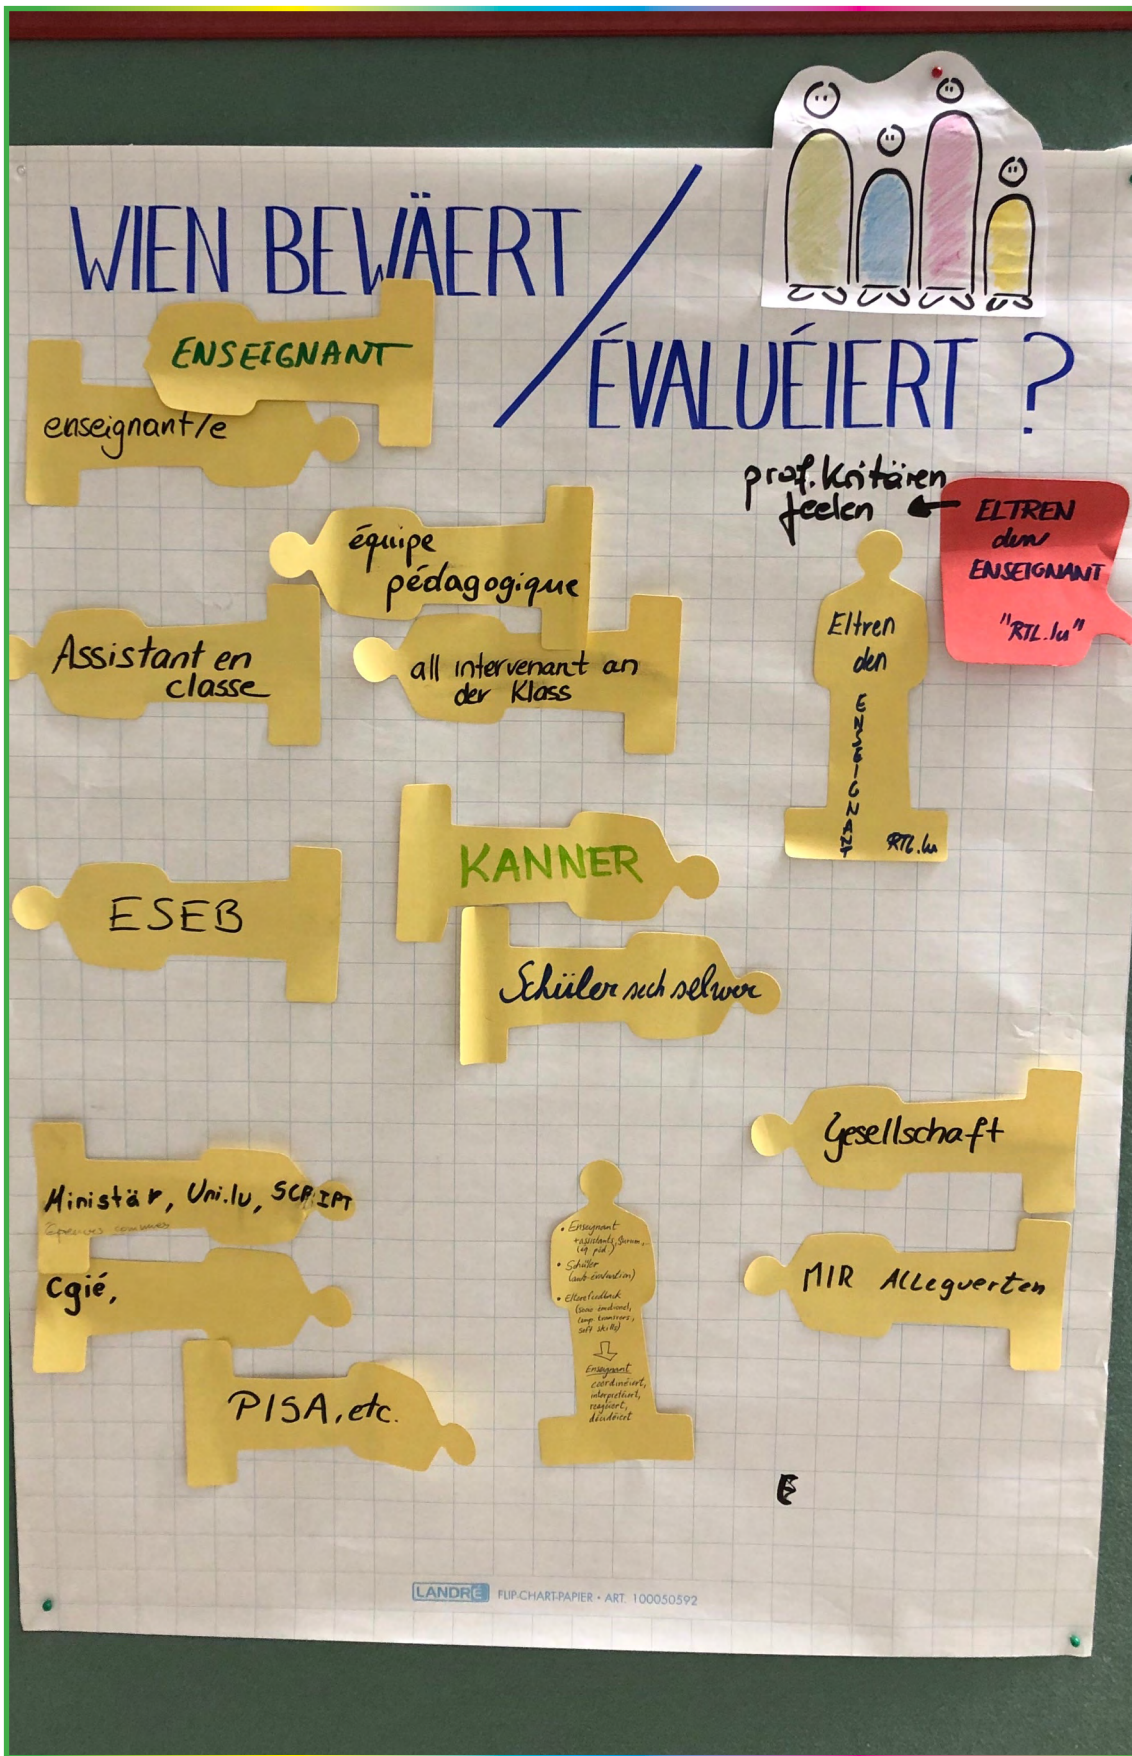 WIEN BEWÄERT /
ÉVALUÉIERT ?
ENSEIGNANT
enseignant/e
prof. Kritären
feelen
ELTREN
den
ENSEIGNANT
"RTL.lu"
équipe
pédagogique
Eltren
den
ENSEIGNANT
RTL.lu
Assistant en
classe
all intervenant an
der Klass
KANNER
ESEB
Schüler sech selwer
Gesellschaft
Ministär, Uni.lu, SCRIPT
Épreuves communes
Cgié,
MIR ALLEGUERTEN
• Enseignant
+assistants,
(éq. péd.)
• Schüler
(auto-évaluation)
• Elterefeedback
(socio-émotionel,
comp. transvers.,
soft skills)
Enseignant
coordinéiert,
interpretéiert,
reagéiert,
décidéiert
PISA, etc.
E
LANDRÉ FLIP-CHART-PAPIER • ART. 100050592